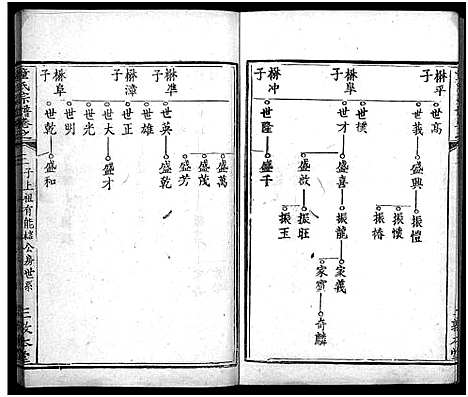 楙平子
世高
世義
盛興
振愷
振懷
振椿
楙阜子
世樸
世才
盛喜
盛啟
振龍
振旺
振玉
家義
家賓
奇麟
楙冲子
世隆
盛千
楙準子
世英
世雄
盛萬
盛茂
盛芳
盛乾
楙漳子
世正
世大
盛才
世光
楙阜子
世明
世乾
盛和
童氏宗譜卷之
子上祖有能公房世系
三
敦本堂